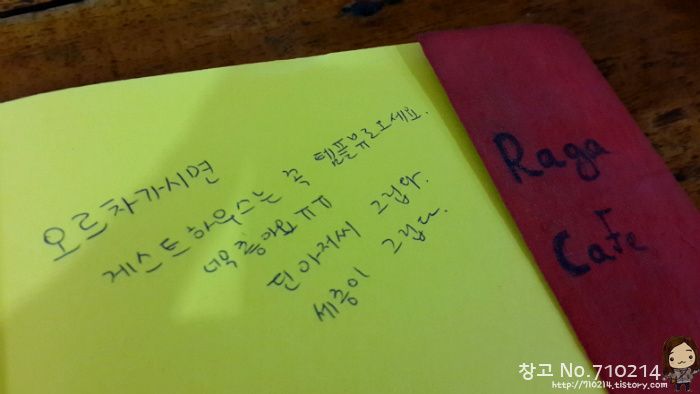 오르차가시면
게스트하우스는 꼭 템플뷰로오세요.
너무좋아요 ㅠㅠ
딘아저씨 그립다.
세종이 그립다.
Raga
Cafe
창고 No.710214.
http://710214.tistory.com/